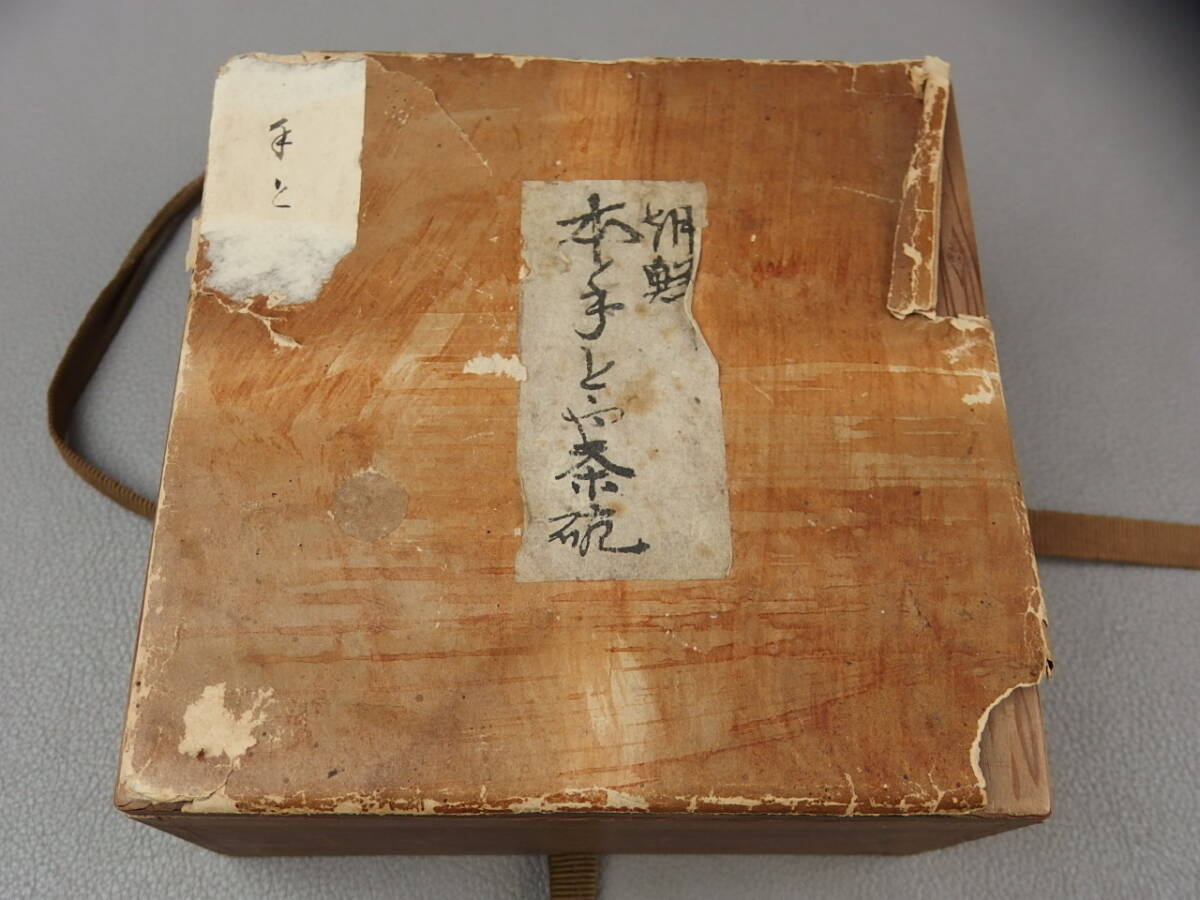 朝鮮
本と手とや茶碗
手と